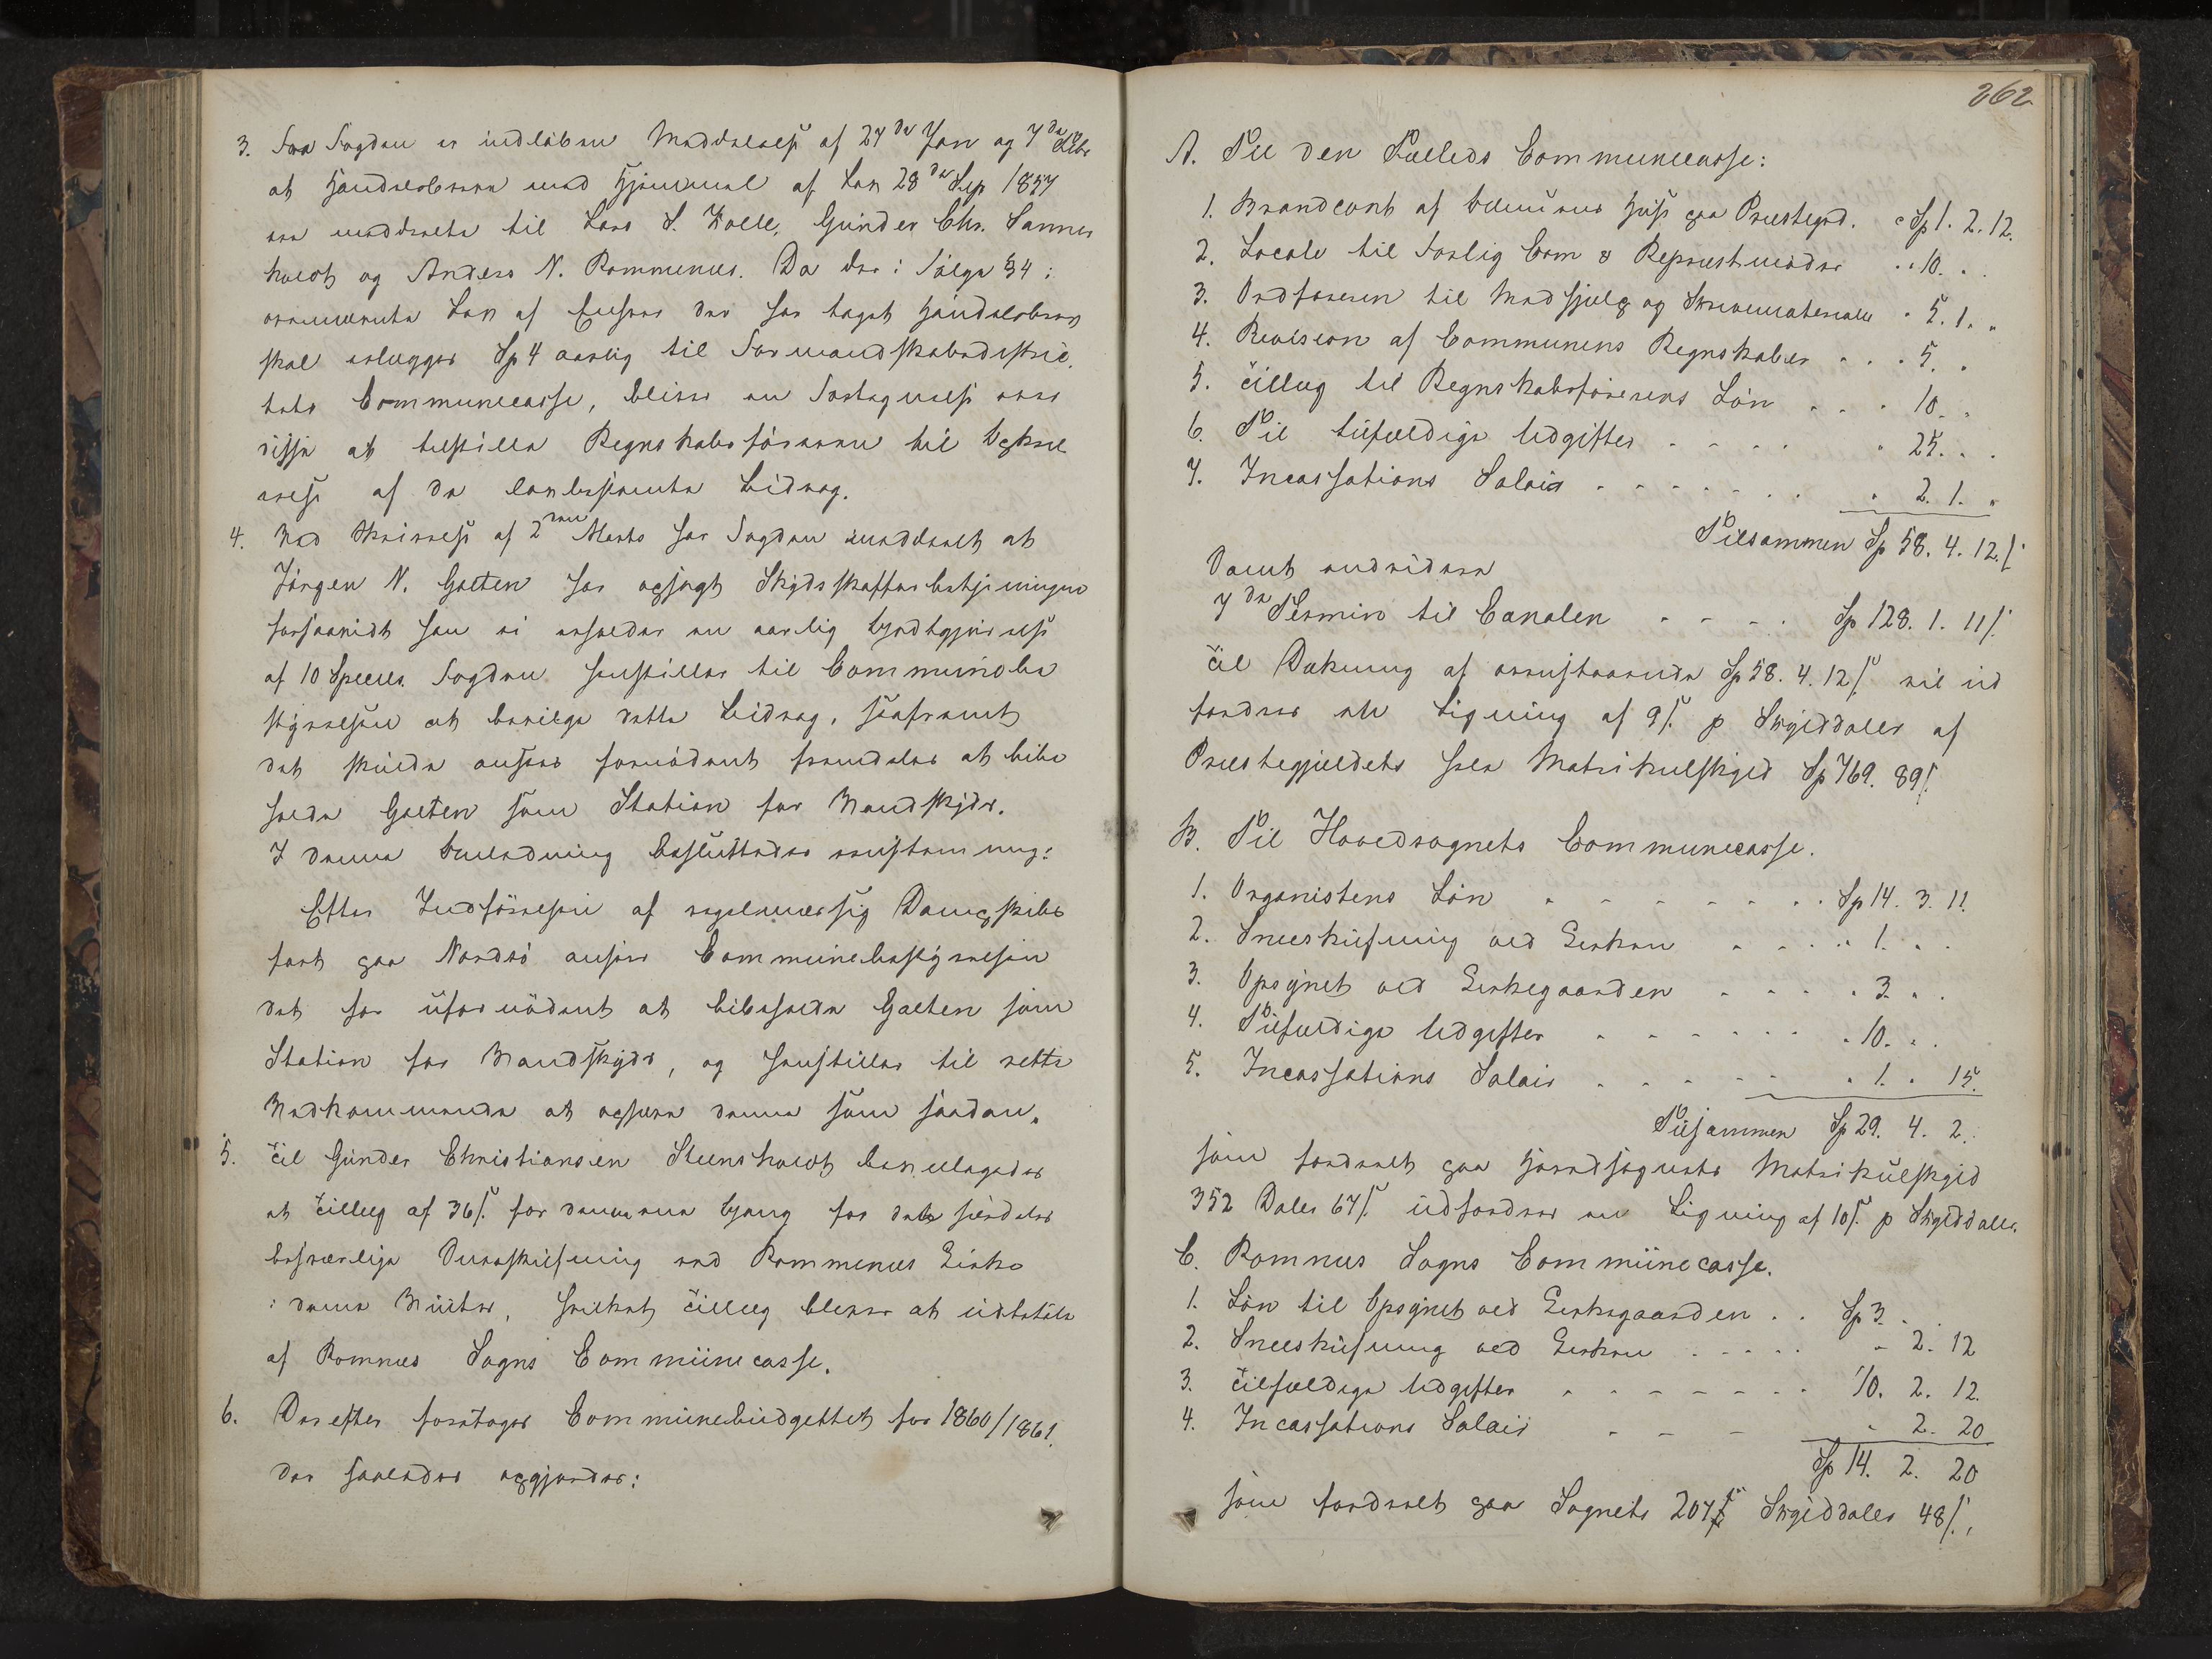 3. Fra Fogden er indløben Meddelelse af 24de Jan og 7de Febr
at Handelsbreve med Hjemmel af Lov 28de Sep 1857
ere meddeelte til Lars S. Kolle, Gunder Chr. Sannes
holdt og Anders N. Romnæs. Da der i Følge § 4 i
ovennævnte Lov af Enhver der har taget Handelsbrev
skal erlægges Sp 4 aarlig til Formandskabsdistric
tets Communecasse, bliver en Fortegnelse over
disse at tilstille Regnskabsføreren til Opkræ
velse af de lovbestemte Bidrag.
4. Ved Skrivelse af 2den Marts har Fogden meddeelt at
Jørgen N. Galten har opsagt Skydsskafferbestillingen
forsaavidt han ei erholder en aarlig Godtgjørelse
af 10 Species. Fogden henstiller til Communebe
styrelsen at bevilge dette Bidrag, saafremt
det skulde ansees fornødent fremdeles at bibe
holde Galten som Station for Vandskyds.
I denne Anledning besluttedes eenstemmig:
Efter Indførelsen af regelmæssig Dampskibs
fart paa Nordsø anseer Communebestyrelsen
det for ufornødent at bibeholde Galten som
Station for Vandskyds, og henstiller til rette
Vedkommende at ophæve denne som saadan.
5. Til Gunder Christiansen Steensholdt bevilgedes
et Tillæg af 36 s. for denne ene Gang for det særdeles
besværlige Sneeskufning ved Romnæs Kirke
i denne Vinter, hvilket Tillæg bliver at udbetale
af Romnes Sogns Communecasse.
6. Derefter foretoges Communebudgettet for 1860/1861.
der saaledes opgjordes:
262
A. Til den Fælleds Communecasse:
1. Brandcont af Huse paa Præstegrd. Sp 1. 2. 12.
2. Locale til Forlig Com & Repræstmøder " 10. "
3. Ordføreren til Medhjælp og Skrivematerialer " 5. 1. "
4. Revision af Communens Regnskaber " 5. "
5. Tillæg til Regnskabsførerens Løn " 10. "
6. Til tilfældige Udgifter " 25. "
7. Incassations Salair " 2. 1. "
Tilsammen Sp 58. 4. 12 s.
Samt endvidere
7de Termin til Canalen Sp 128. 1. 11 s.
Til Dækning af ovenstaaende Sp 58. 4. 12 s. vil ud
fordres en Ligning af 9 s. p Skylddaler af
Præstegjeldets hele Matrikulskyld Sp 769. 89 s.
B. Til Hovedsognets Communecasse.
1. Organistens Løn Sp 14. 3. 11.
2. Sneeskufning ved Kirken " 1. "
3. Opsynet ved Kirkegaarden " 3. "
4. Tilfældige Udgifter " 10. "
5. Incassations Salair " 1. " 15.
Tilsammen Sp 29. 4. 2.
som fordeelt paa Hovedsognets Matrikulskyld
352 Daler 67 s. udfordrer en Ligning af 10 s. p Skylddaler.
C. Romnes Sogns Communecasse.
1. Løn til Opsynet ved Kirkegaarden Sp 3. "
2. Sneeskufning ved Kirken " 2. 12
3. Tilfældige Udgifter 10. 2. 12.
4. Incassations Salair " 2. 20
Sp 14. 2. 20
som fordeelt paa Sognets 207 Skylddaler 48 s.,